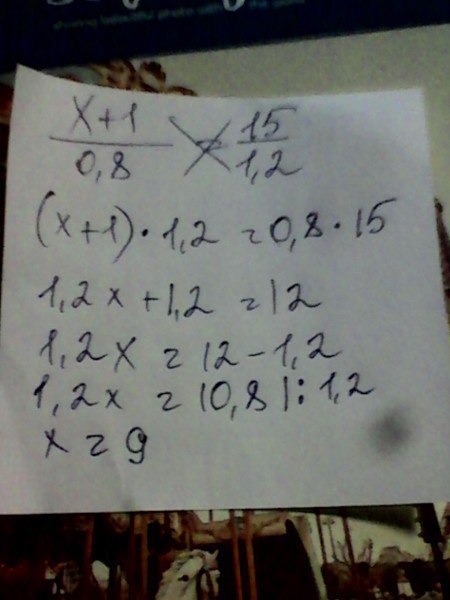 x+1 / 0,8 = 15 / 1,2
(x+1)·1,2 = 0,8·15
1,2x + 1,2 = 12
1,2x = 12 - 1,2
1,2x = 10,8 |: 1,2
x = 9